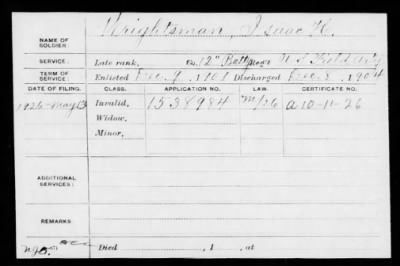 Wrightsman, Isaac H.
NAME OF SOLDIER:
SERVICE: Late rank, Co. 12" Batty Reg't U S Field Arty
TERM OF SERVICE: Enlisted Dec. 9, 1901 Discharged Dec. 8, 1904
DATE OF FILING. CLASS. APPLICATION NO. LAW. CERTIFICATE NO.
1926-May 13 Invalid, 1538984 a 10-11-26
Widow,
Minor,
ADDITIONAL SERVICES:
REMARKS
Died , 1 , at